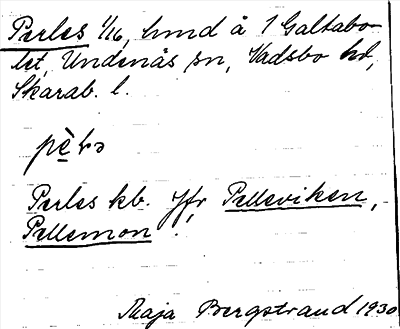 Perles 1/16, hmd å 1 Galtabo-
let, Undenäs sn, Vadsbo hd,
Skarab. l.
Perles kb. Jfr Pelleviken,
Pellemon.
Maja Bergstrand 1930